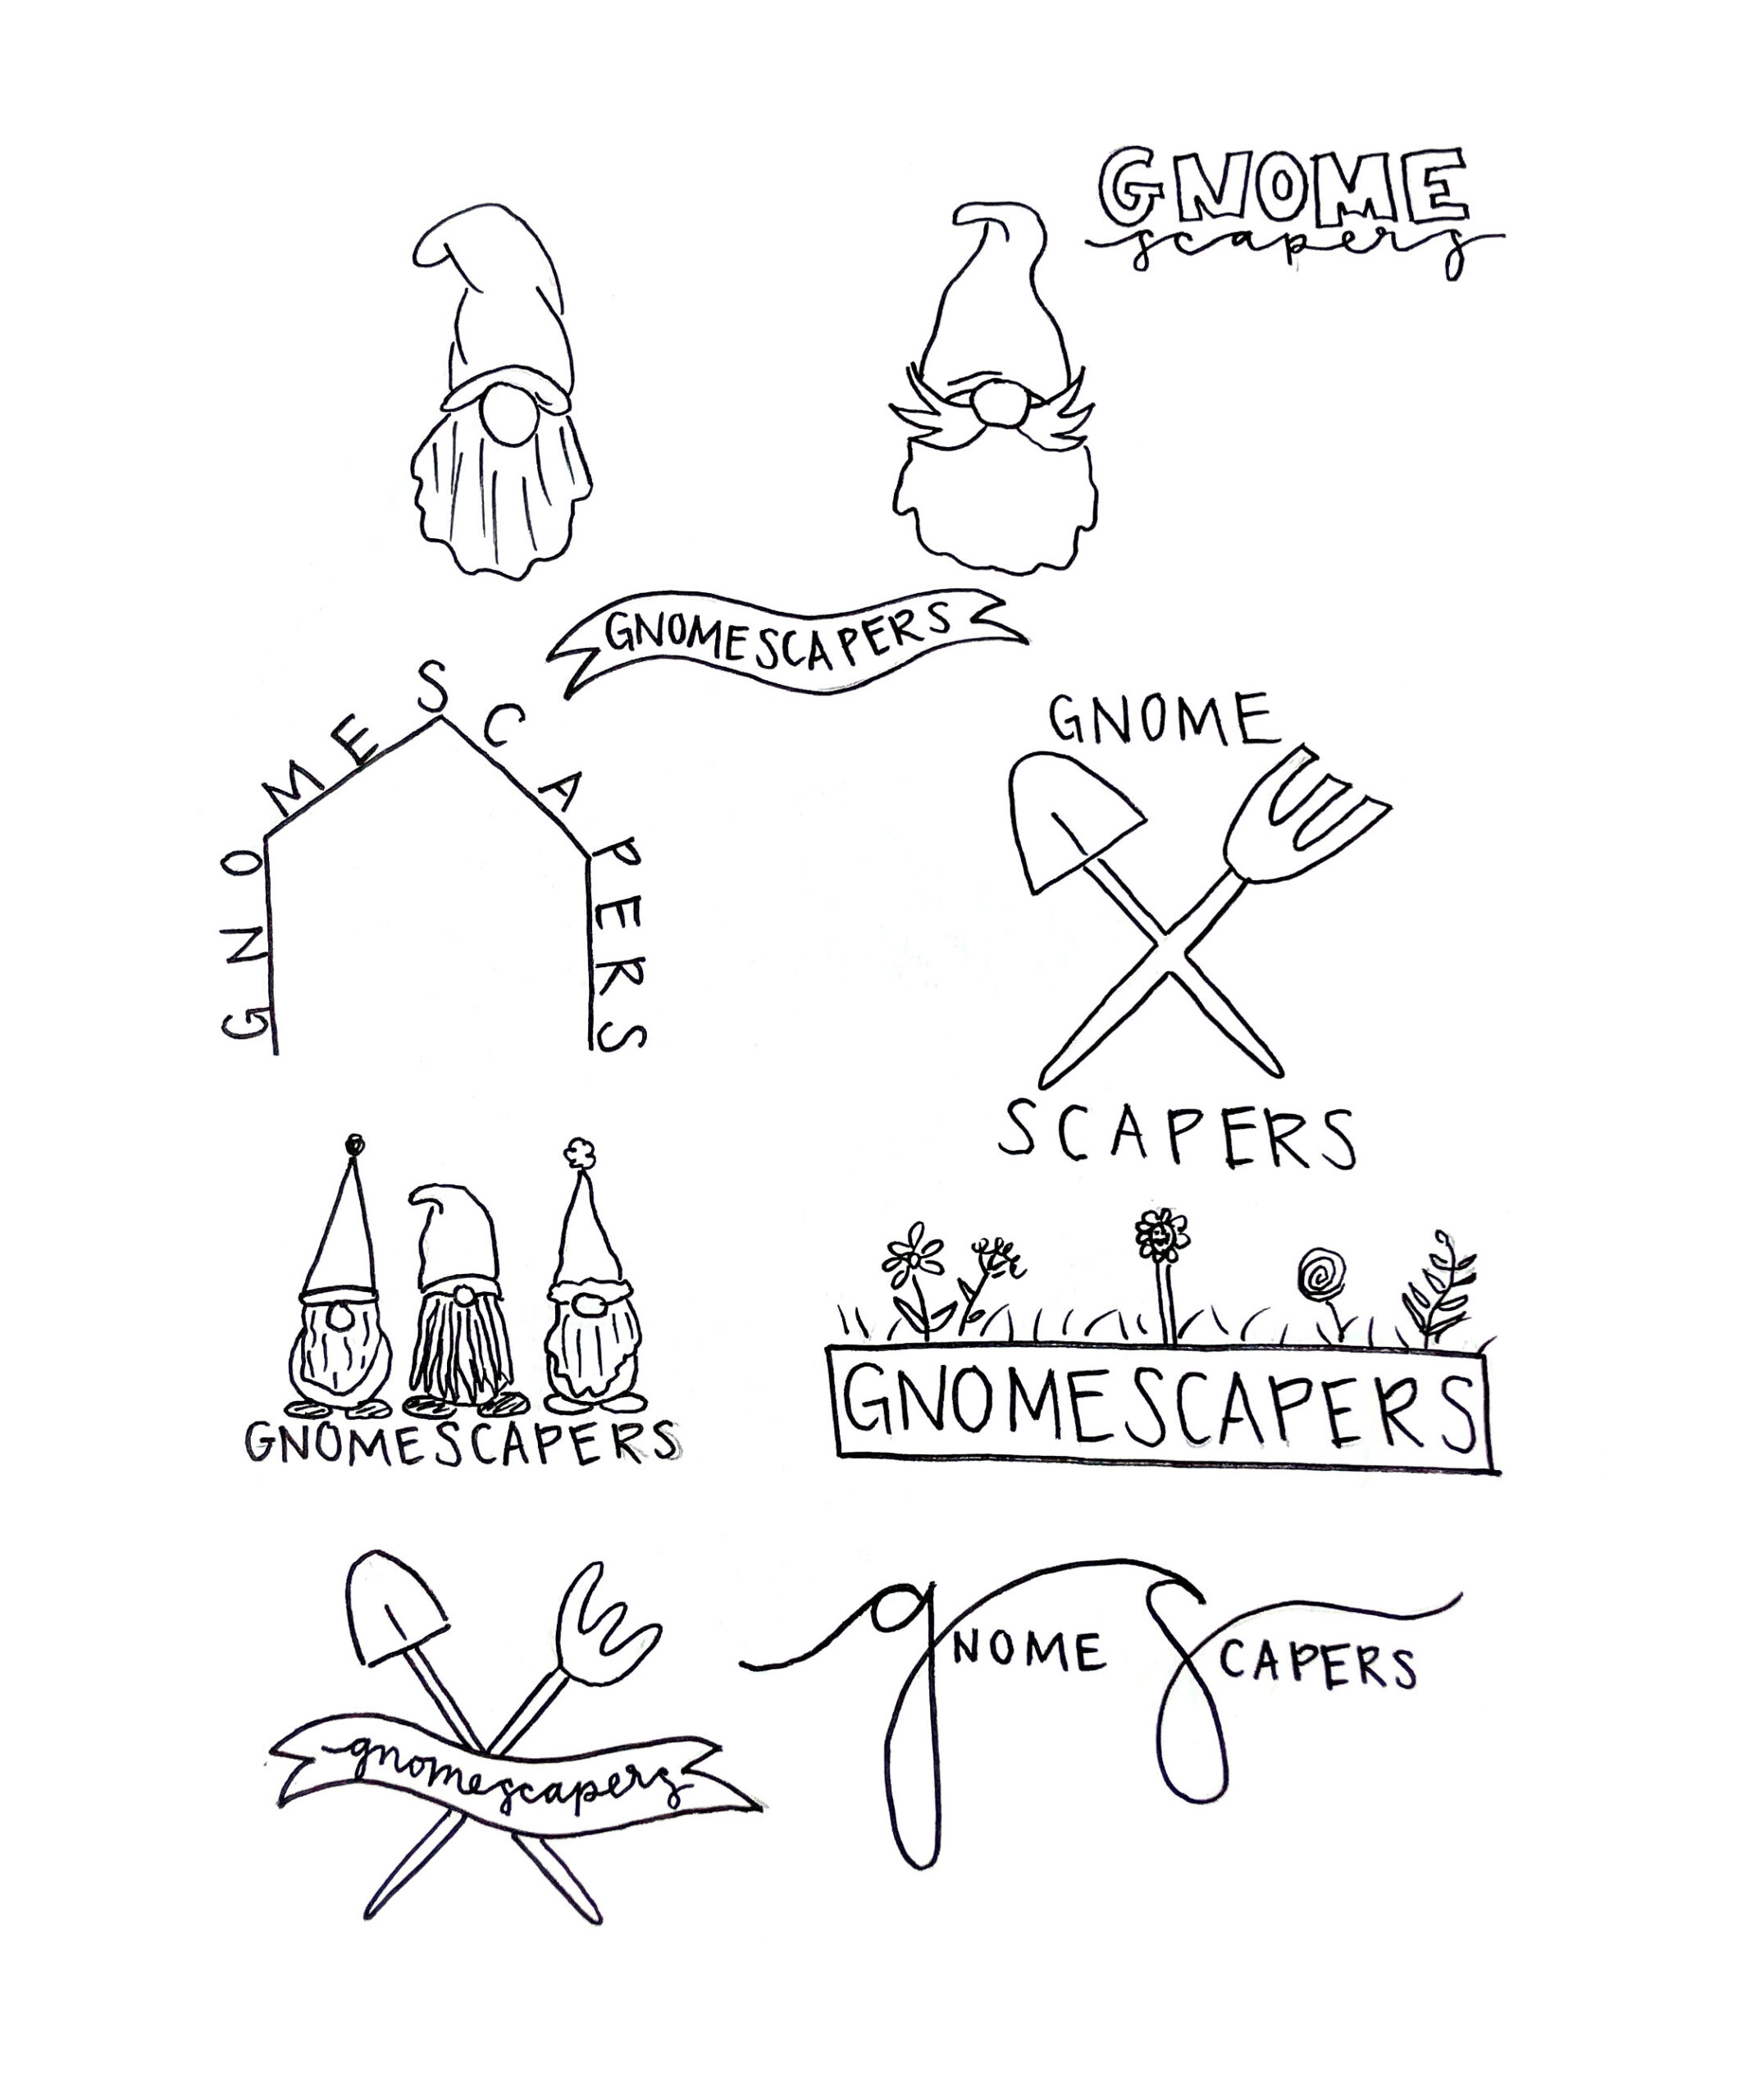 GNOME
scapers
GNOMESCAPERS
GNOMESCAPERS
GNOME
SCAPERS
GNOMESCAPERS
GNOMESCAPERS
gnomescapers
gNOME SCAPERS